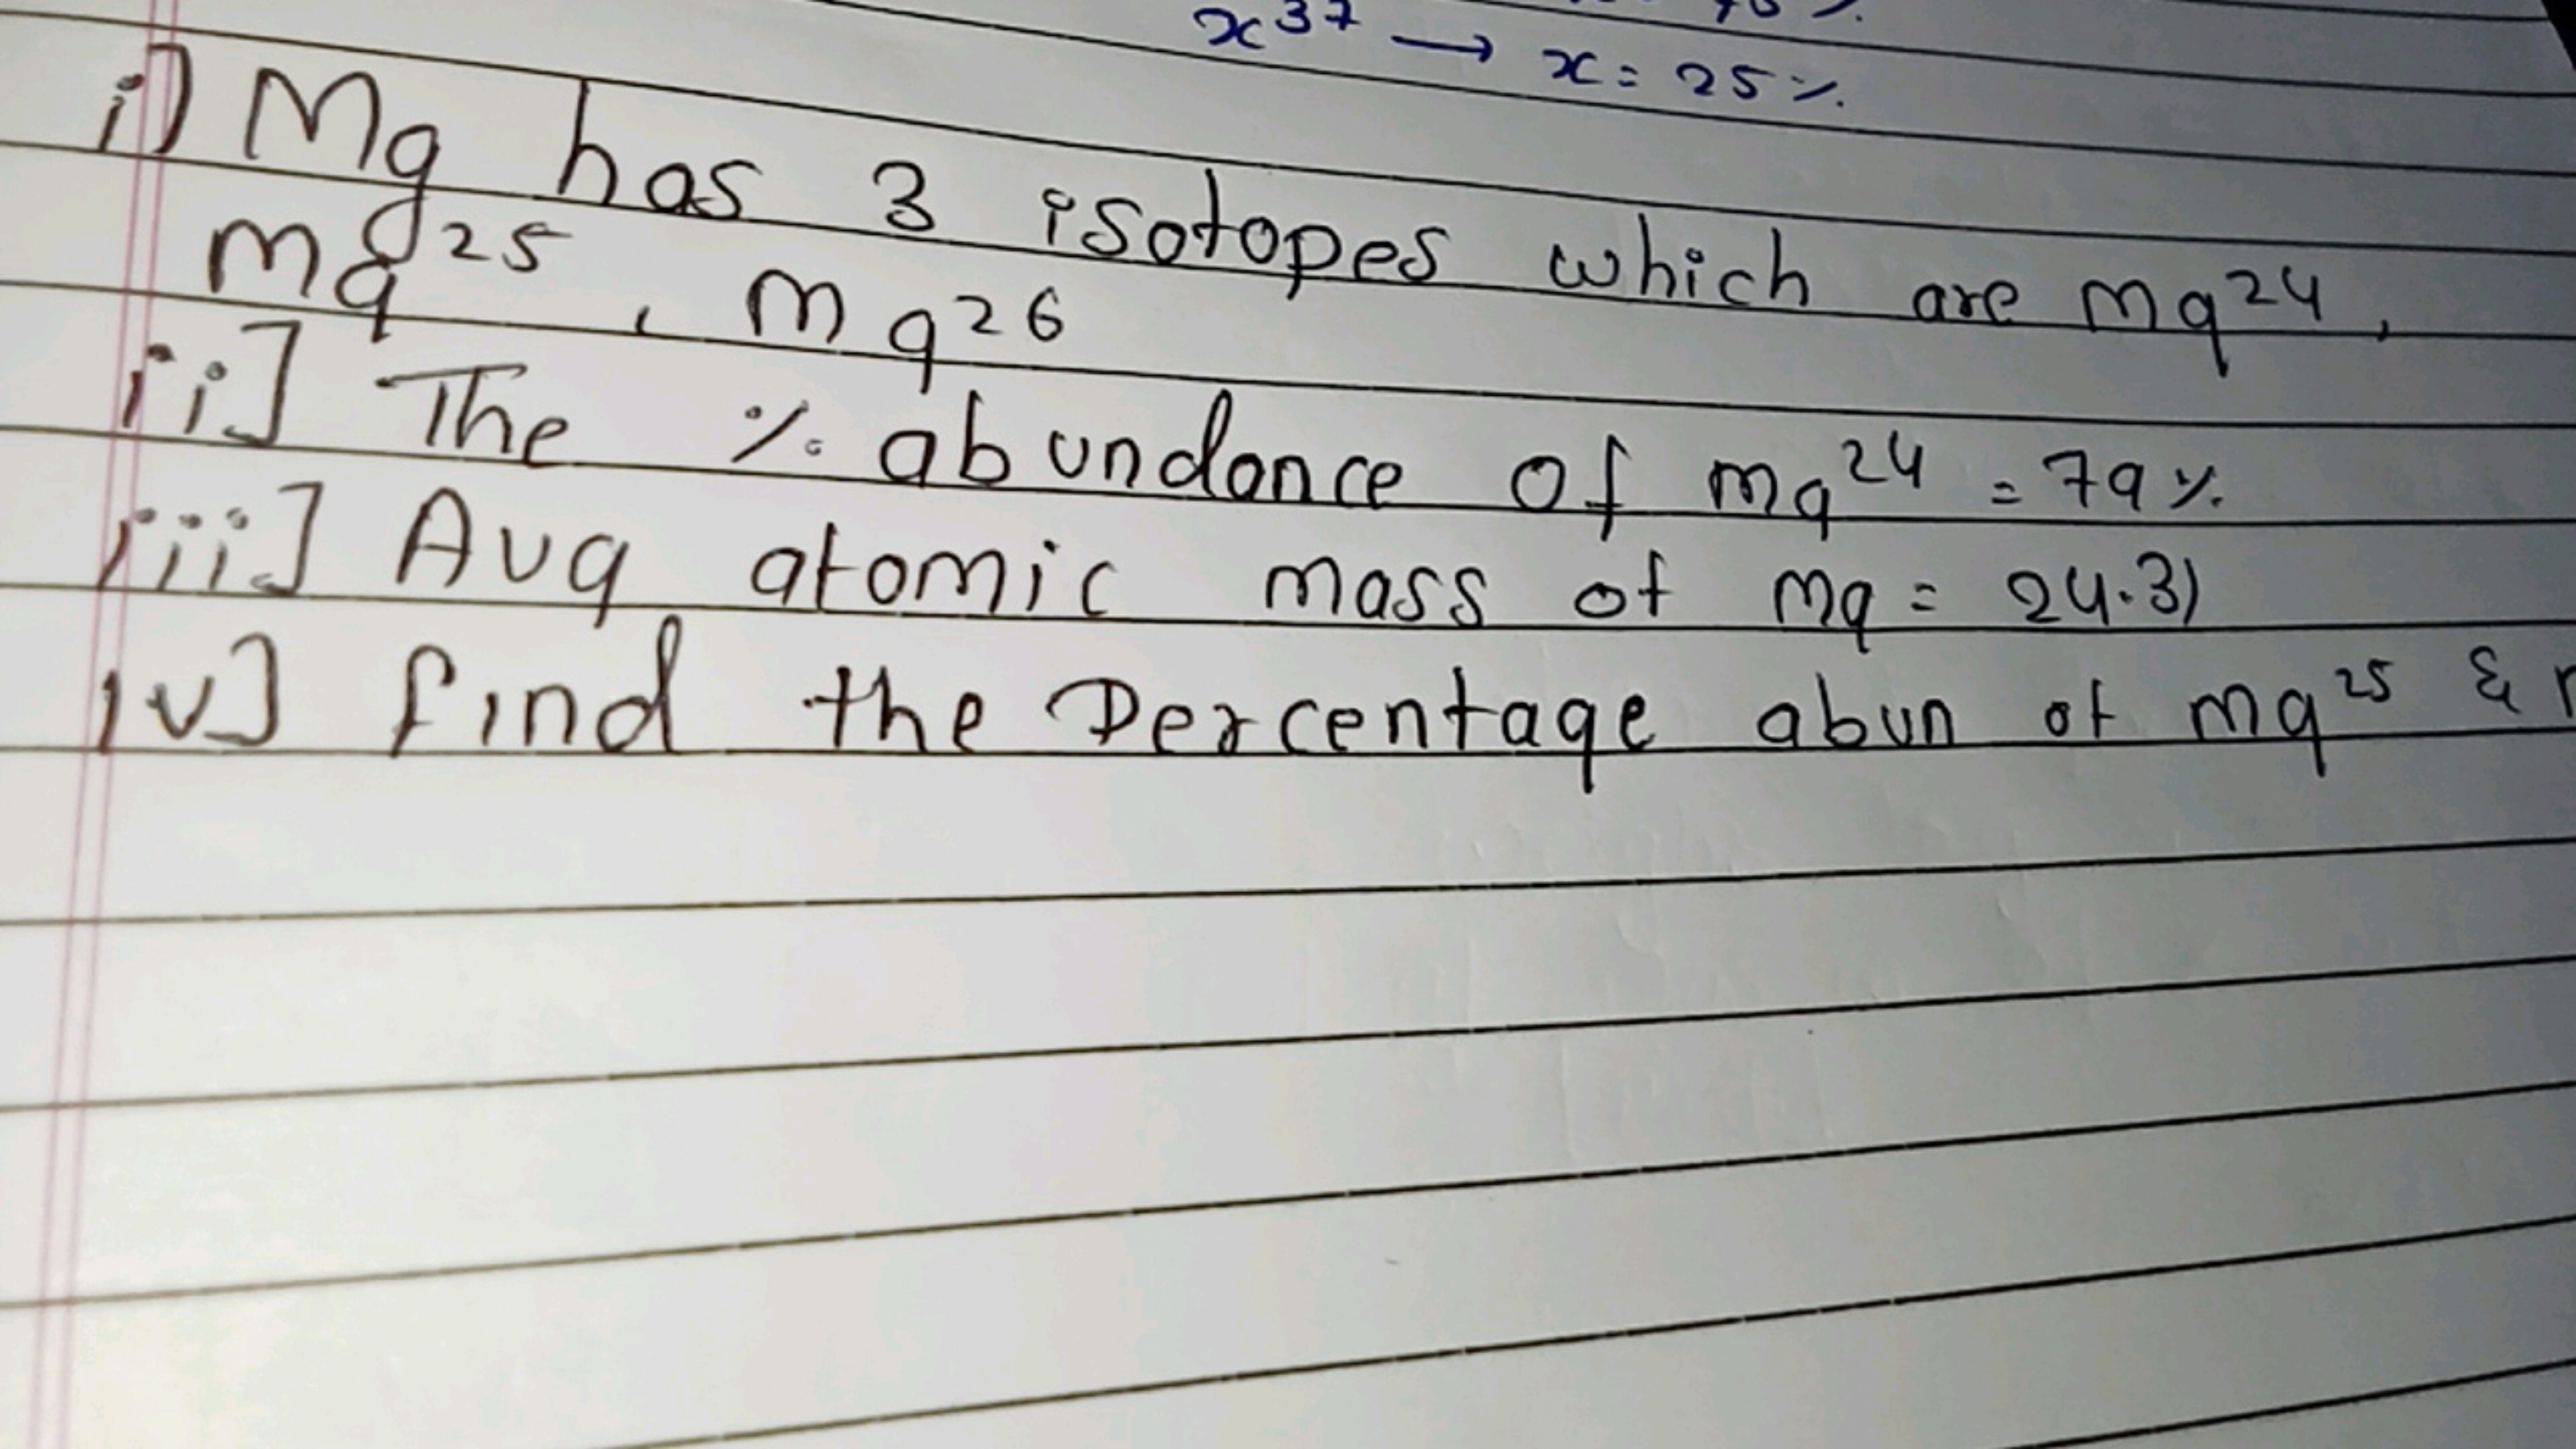 x³⁷ → x = 25%
i] Mg has 3 isotopes which are mg²⁴,
mg²⁵, mg²⁶
ii] The % abundance of mg²⁴ = 79%
iii] Avg atomic mass of mg = 24.31
iv] find the Percentage abun of mg²⁵ &